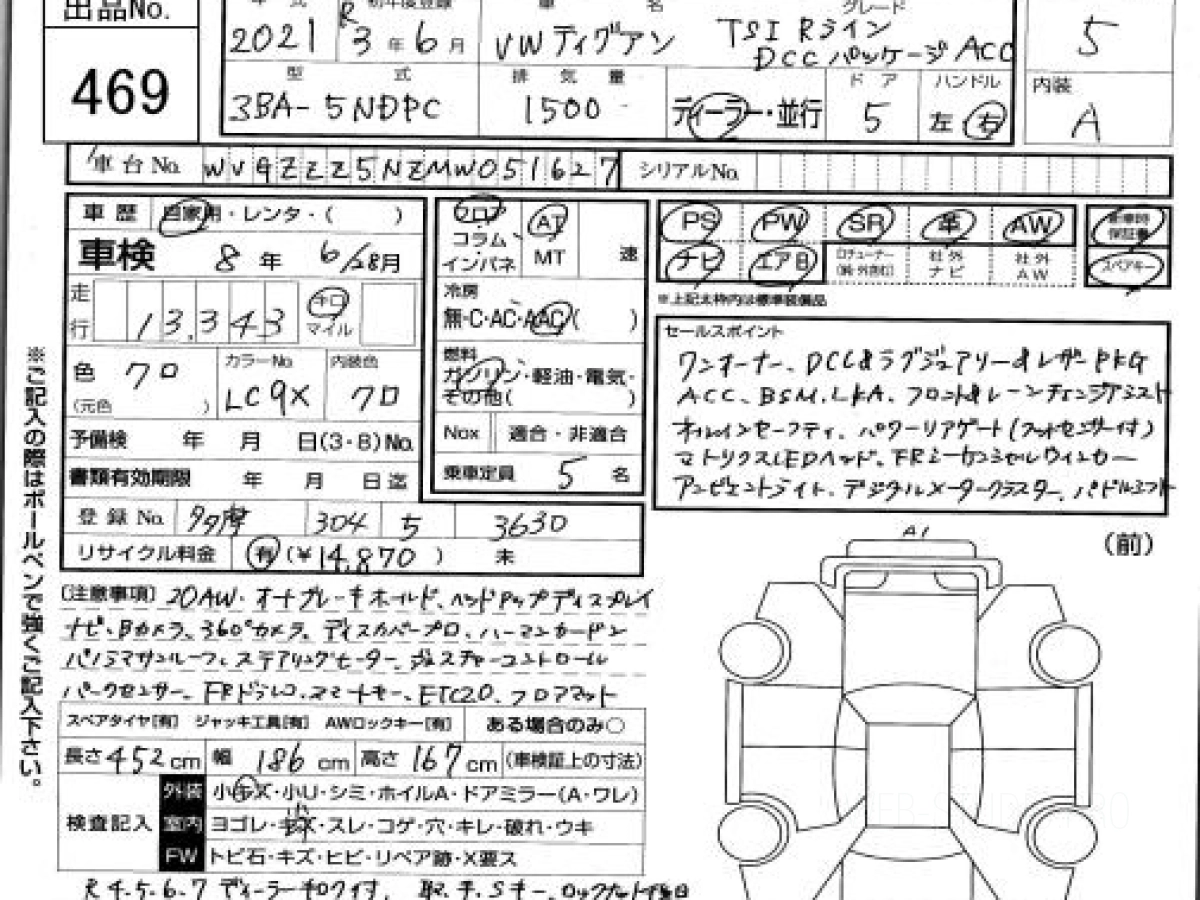 出品No.
469
年式 初年度登録 車名 グレード
2021 R3年6月 VW ティグアン TSI Rライン
DCCパッケージ ACC
5
型式 排気量 ドア ハンドル
3BA-5NDPC 1500 ディーラー・並行 5 左 右
内装
A
車台No. WVGZZZ5NZMW051627 シリアルNo.
車歴 自家用・レンタ・( )
車検 8年 6/28月
走行 13,343 キロ マイル
色 クロ カラーNo. LC9X 内装色 クロ
(元色 )
予備検 年 月 日(3・8)No.
書類有効期限 年 月 日迄
登録No. 多摩 304 5 3630
リサイクル料金 有 (¥14,870) 未
フロア コラム インパネ AT MT 速
冷房
無・C・AC・AAC( )
燃料
ガソリン・軽油・電気・
その他( )
Nox 適合・非適合
乗車定員 5 名
PS PW SR 革 AW 新車時保証書
ナビ エアB 社外ナビ 社外AW スペアキー
※上記太枠内は標準装備品
セールスポイント
ワンオーナー、DCC&ラグジュアリー&レザーPKG
ACC、BSM、LKA、フロント&レーンチェンジアシスト
オールインセーフティ、パワーリアゲート(フットセンサー付)
マトリクスLEDヘッド、FRシーケンシャルウィンカー
アンビエントライト、デジタルメータークラスター、パドルシフト
[注意事項] 20AW・オートブレーキホールド、ヘッドアップディスプレイ
ナビ、Bカメラ、360°カメラ、ディスカバープロ、ハーマンカードン
パノラマサンルーフ、ステアリングヒーター、ジェスチャーコントロール
パークセンサー、FRドラレコ、スマートキー、ETC2.0、フロアマット
スペアタイヤ[有] ジャッキ工具[有] AWロックキー[有] ある場合のみ○
長さ 452 cm 幅 186 cm 高さ 167 cm (車検証上の寸法)
検査記入
外装 小キズ・小U・シミ・ホイルA・ドアミラー(A・ワレ)
室内 ヨゴレ・キズ・スレ・コゲ・穴・キレ・破れ・ウキ
FW トビ石・キズ・ヒビ・リペア跡・X要ス
R4.5.6.7 ディーラーキロク付、取、手、Sキー、ロックナット
A1
(前)
※ご記入の際はボールペンで強くご記入下さい。